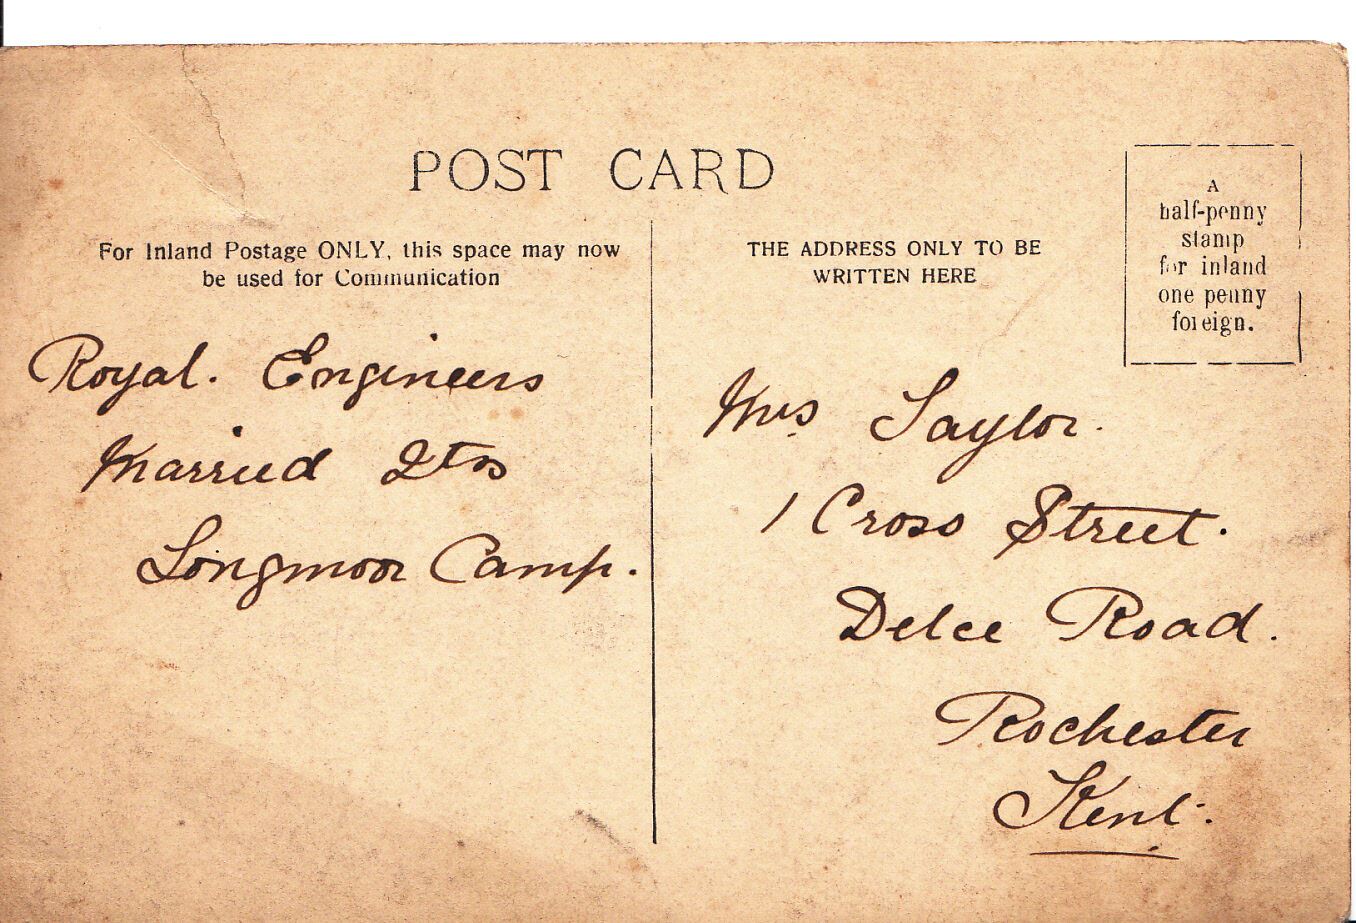 POST CARD
A
half-penny
stamp
for inland
one penny
foreign.
For Inland Postage ONLY, this space may now
be used for Communication
THE ADDRESS ONLY TO BE
WRITTEN HERE
Royal. Engineers
Married Qtrs
Longmoor Camp.
Mrs Taylor.
1 Cross Street.
Delce Road.
Rochester
Kent.